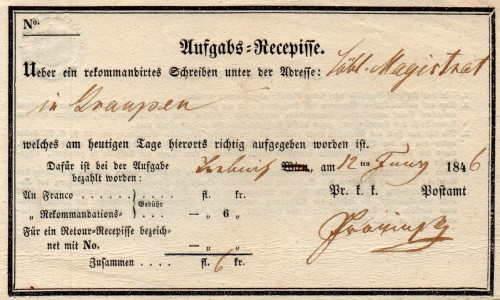 No.
Aufgabs-Recepisse.
Ueber ein rekommandirtes Schreiben unter der Adresse: Löbl. Magistrat
in Graupen
welches am heutigen Tage hierorts richtig aufgegeben worden ist.
Dafür ist bei der Aufgabe
bezahlt worden: Wien, am 12ten Juny 1846
An Franco . . . . . . . fl. kr. Pr. k. k. Postamt
„ Rekommandations- Gebühr —„ 6 „
Für ein Retour-Recepisse bezeich-
net mit No. —„ „
Zusammen fl. 6 kr.